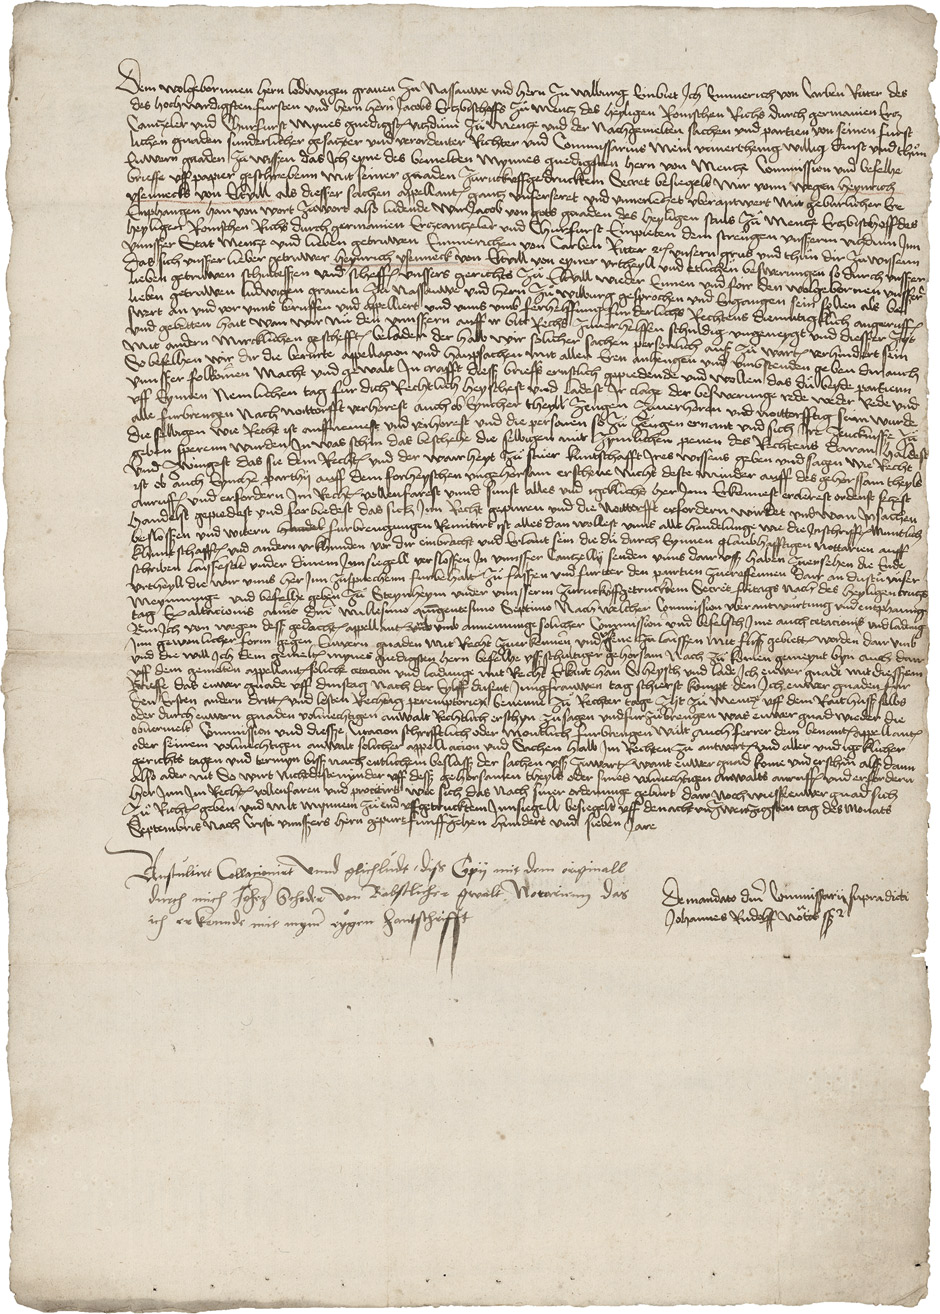 Dem wolgebornnen hern lodwigen grauen zu Nassauwe vnd hern zu wilburg Einbiet Ich Emmerich von Carben Ritter des
des hochwirdigsten fursten vnd hern hern Jacobs Ertzbischoffs zu Mentz des heyligen Romschen Richs durch germanien Ertz
Cantzeler vnd Churfurst mynes gnedigst vitzdum zu Mentze vnd der Nachgemelten sachen vnd partien von seinen furst
lichen gnaden sunderlicher gesatzter vnd verordenter Richter vnd Commissarius Mein vnuertheinig willig dinst vnd thun
Euwern gnaden zu wissen das Ich eyne des bemelten Mynnes gnedigsten hern von Mentze Commission vnd befelhe
brieffe vff papier geschrebenn Mit seiner gnaden zuruckuffgedrucktem Secret besiegelt Mir vonn wegen heynrich
ysennecks von Eltuill als diesser sachen appellant gantz vnuerseret vnd vnuerletzt vberantwert Mit geburlicher Ere
Emphangen han von wort zu wort also ludende Wir Jacob von gots gnaden des heyligen stuls zu Mentze Ertzbisthoff des
heyligen Romschen Richs durch germanien Ertzcantzeler vnd Churfurst Empieten dem strengen vnsserm vitzdum Inn
vnnsser Stat Mentze vnd lieben getruwen Emmerichen von Carben Ritter vnsern grus vnd thun dir zu wissenn
Das sich vnsser lieber getruwer heynrich ysenneck von Eltuill von eyner vrtheyll vnd etlichen besweringen so durch vnsser
lieben getruwen schultessen vnd scheffen vnssers gerichts zu Eltuill wieder Ennen vnd for den wolgebornen vnsser
lieben getruwen ludwigen grauen zu Nassauwe vnd hern zu wilburg gesprochen vnd Ergangen sein sollen als be
swert an vnd vor vnns beruffen vnd appelliert vnd vnns vmb forhelffung furderlichs Rechtens diemutigklich angeruff
vnd gebetten hait Wan wir nu den vnnssern auff ir bit Rechs zuuerhelffen schuldig vngeneygt vnd diesser zyt
mit andern mircklichen gescheft beladen der halb wir solichen sachen personlich auß zu wart verhindert sein
So befelhen wir dir die berurte appellacion vnd haupsachen mit allen Eren anhengen vnd vmbstenden geben dir auch
vnnsser folkomen Macht vnd gewalt In crafft dieß brieffs ernstlich gepiedende vnd wollen das du beyde partienn
vff Eynnen Nemlichen tag fur dich Rechtlich heyschest vnd ladest Ir clage der besweringe rede weder rede vnd
alle furbrengen Nach notturfft verhorest auch ob Eyncher theyll zeugen zuuerhorn vnd notturfftig sein wurde
die selbigen wie Recht ist auffnemest vnd verhorest vnd die personen so zu zeugen ernant vnd sich irs zeucknisse zu
geben sperenn wurden In was schin das beschehe die selbigen mit zymlichen penen des Rechtens daran haldest
vnd zwingest das sie dem Recht vnd der warheyt zu steier kuntschafft Ires wissens geben vnd sagen wie Recht
ist ob auch Eynche parthy auff dem forheyschen vngehorsam erschene Nicht deste minder auff des gehorsam theyls
anruff vnd erfordern Im Recht vollenfarest vnnd sunst alles vnd igkliche her Inn Erkennest erclerest ordenst setzest
handelst gepiedest vnd forbiedest das sich Im Recht gepuren vnd die Notturfft erfordern wirdet vnd wan In sachen
beslossen vnd witern handel furbrengungen Remittirt ist alles dan wollest vnns alle handelinge wie die Inschrifft Muntlich
kuntschafft vnd andern vrkunden vor dir einbracht vnd Erlaut sein die du durch Eynnen glaubhafftigen Nottarien auff
schriben laissest vnder dinem Innsiegell verslossen In vnnsser Cantzellij senden vnns daruff haben zuuersehen die Ende
vrtheyll die wir vnns her Inn zusprechenn furbehalt zu fassen vnd furtter den partien zueroffennen dar an dustu vnser
Meynunge vnd befelhe geben zu Steynheym vnder vnnsserm zuruckuffgetruckem Secret fritags nach des heyligen crutz
tag Exaltacionis anno dni Millesimo quingentesimo Septimo Nach welcher Commission vberantwurtung vnd entphanng
Bin Ich von wegen dess gedacht appellant vmb annemunge solicher Commission vnd befelhs Ime auch citacions vnd ladung
Im gewonlicher form gegen Euwern gnaden mit Recht zuerkennen vnd zu laissen mit flyss gebett worden dar vmb
vnd die will Ich dem gemelt mynes gnedigsten hern befelhe vß schuldiger gehorsam Nach zu komen gemeynt byn auch dan
vff dem gemelten appellant soliche citacion vnd ladunge mit Recht Erkant han So heysch vnd lade Ich euwer gnade mit diesem
Brieffe das euwer gnade vff dinstag nach der Eylff dusent Jungfrauwen tag schierst kompt den Ich euwer gnaden fur
den Ersten andern dritt vnd letsten Rechtag peremptoriez benenne zu Rechter tage zyt zu Mentze vff dem Rathuß selbs
oder durch euwern gnaden volmechtigen anwalt Rechtlich erschyn zusagen vnd furzubrengen was euwer gnad wieder die
obuermelt Commission vnd diesse Citacion schryfftlich oder Montlich furbrengen wilt auch ferrer dem benant appellant
oder seinem volmechtigen anwalt solicher appellacion vnd Sachen halb Im Rechten zu antwort vnd aller vnd igklicher
gerichts tagen vnd termyn biß nach entlichem besluß der sachen vß zuwart want euwer gnad kome vnd erschen alß dann
also ader nit So wirt Nichdestemynder vff deß gehorsamen theyls oder sines volmechtigen anwalts anruff vnd erfordern
her Inn Im Recht vollenfaren vnd procedirt wie sich das nach siner ordenunge geburt darnoch wiesß euwer gnad sich
zu Richt geben vnd mit mynnem zu end vffgetrucktem Innsiegell besiegelt vff den acht vnd zwentzigsten tag des Monats
Septembris nach Cristi vnnssers hern gepurt funffzehen hundert vnd sieben Jare
Auscultirt Collacionirt vnnd glichludt diss Copij mit dem originall
durch mich Schoder von Babstlicher gwalt Notarium das
ich erkennde mit myner eygen hantschrifft
De mandato dni Commissarij supradicti
Johannes Rudolff Notarius sst